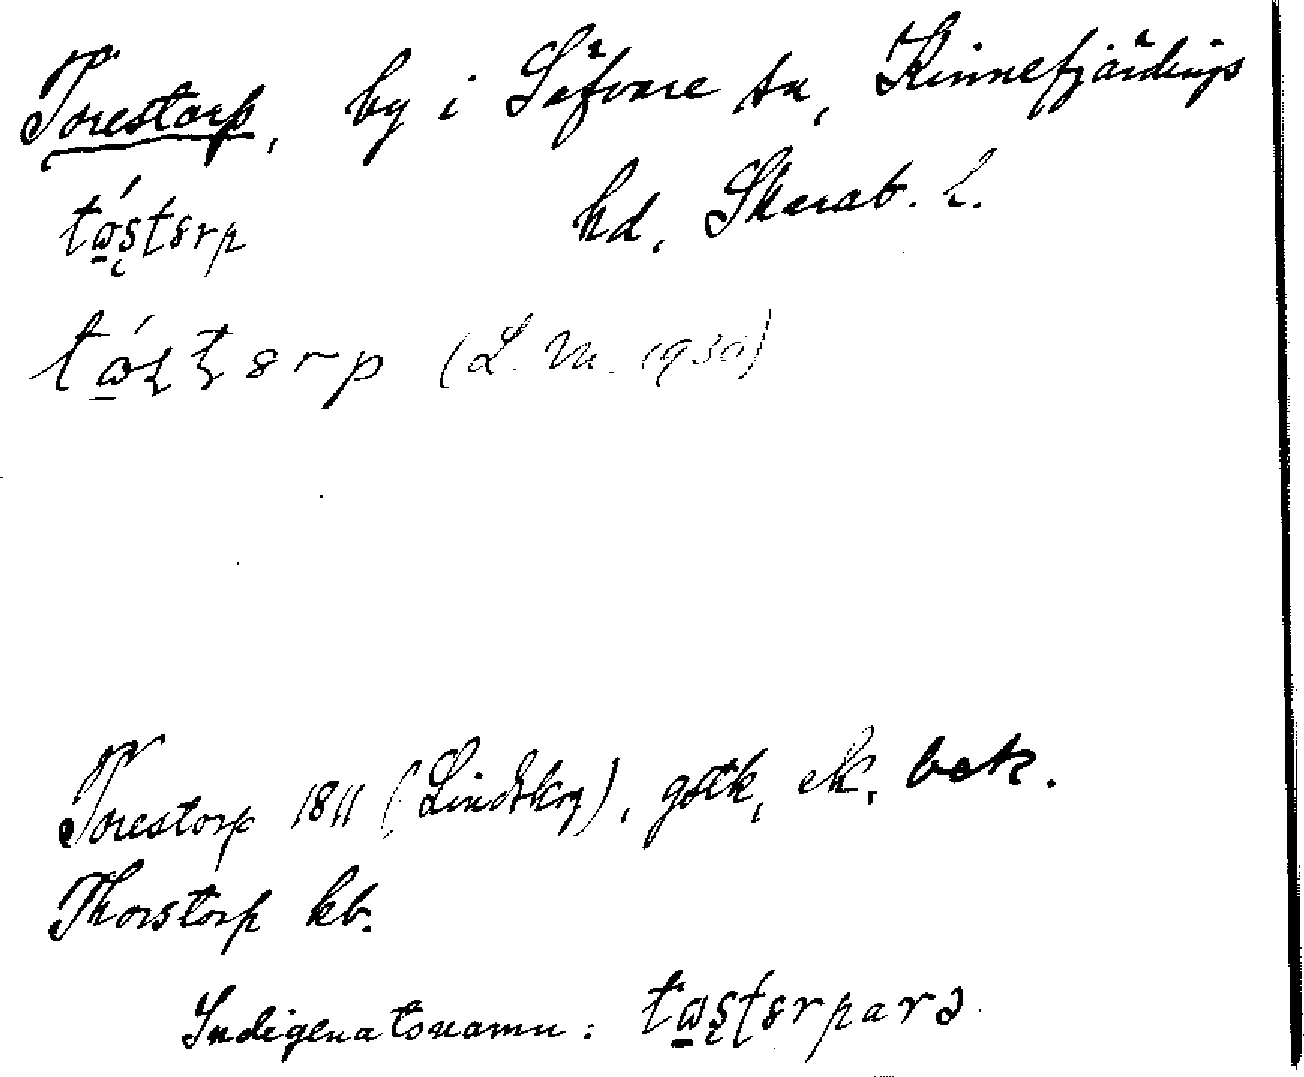 Torestorp, by i Säfvare sn, Kinnefjärdings
hd, Skarab. l.
tɷ́stɛrp
tɷ́stɛrp (L. M. 1930)
Torestorp 1811 (Lindskog), gstk, ek, bek.
Thorstorp kb.
Indigenatsnamn: tɷstɛrparə